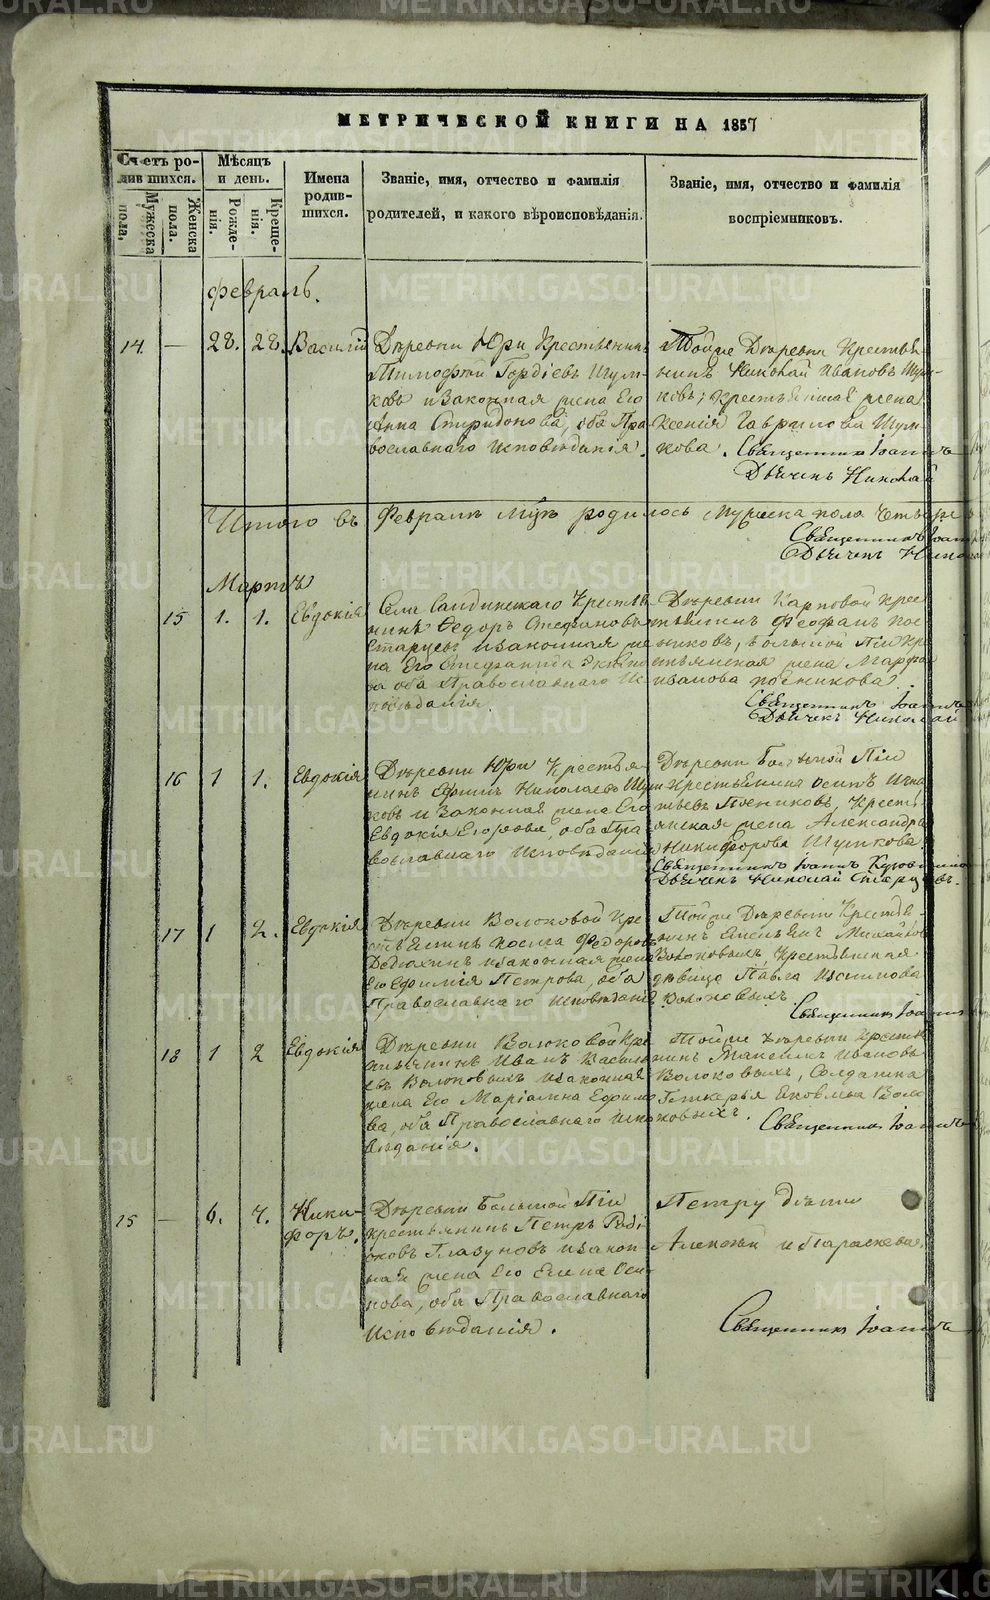 МЕТРИЧЕСКОЙ КНИГИ НА 1857
Счетъ ро-
дившихся.
Мѣсяцъ
и день.
Имена
родив-
шихся.
Званіе, имя, отчество и фамилія
родителей, и какого вѣроисповѣданія.
Званіе, имя, отчество и фамилія
воспріемниковъ.
Мужеска
пола.
Женска
пола.
Рожде-
нія.
Креще-
нія.
Февраль.
14. — 28. 28. Василій
Деревни Юри Крестьянинъ
Тимофей Гордіевъ Шум-
ковъ и Законная жена Его
Анна Спиридонова, оба Пра
вославнаго Исповѣданія.
Тойже Деревни Крестья-
нинъ Николай Ивановъ Шум-
ковъ; Крестьянская жена
Ксенія Гаврилова Шум-
кова. Священникъ Іоаннъ
Дьячекъ Николай
Итого въ Февралѣ м-цѣ родилось Мужеска пола
Священникъ Іоан
Дьячекъ Нико
Мартъ
15 1. 1. Евдокія
Села Крестья
нинъ Ѳедоръ Стефановъ
Старцевъ и законная же
на Его Стефанида
оба Православнаго Ис
повѣданія.
Деревни Карповой Крес
тьянинъ Феофанъ Пос
никовъ, Большой Піи Кре
стьянская жена Марфа
Иванова Посникова.
Священникъ Іоаннъ
Дьячекъ Николай
16 1 1. Евдокія
Деревни Юри Крестья
нинъ Николаевъ Шум
ковъ и Законная жена Его
Евдокія Егорова, оба Пра
вославнаго Исповѣданія
Деревни Большой Піи
Крестьянинъ Осипъ Игна
тьевъ Посниковъ, Кресть
янская жена Александра
Никифорова Шумкова.
Священникъ Іоаннъ
Дьячекъ Николай Старцевъ.
17 1 2. Евдокія
Деревни Волоковой Кре
стьянинъ Ѳедоровъ
Дедюхинъ и законная жена
Его Ефимія Петрова, оба
Православнаго Исповѣданія
Тойже Деревни Крестья-
нинъ Михайловъ
Волоковыхъ, Крестьянская
дѣвица
Волоковыхъ.
Священникъ Іоаннъ
18 1 2 Евдокія
Деревни Волоковой Кре
стьянинъ Иванъ Василь
евъ Волоковыхъ и законная
жена Его Маріамна Ефимо
ва, оба Православнаго Испо
вѣданія.
Тойже Деревни Крестья
нинъ Максимъ Ивановъ
Волоковыхъ, Солдатка
Гликерья Яковлева Воло
ковыхъ. Священникъ Іоаннъ
15 — 6. 7. Ники-
форъ.
Деревни Большой Піи
крестьянинъ Петръ Роді
оновъ Глазуновъ и закон
ная жена Его Елена Оси-
пова, оба Православнаго
Исповѣданія.
Петру дѣти
Алексѣй и Параскева.
Священникъ Іоаннъ
METRIKI.GASO-URAL.RU